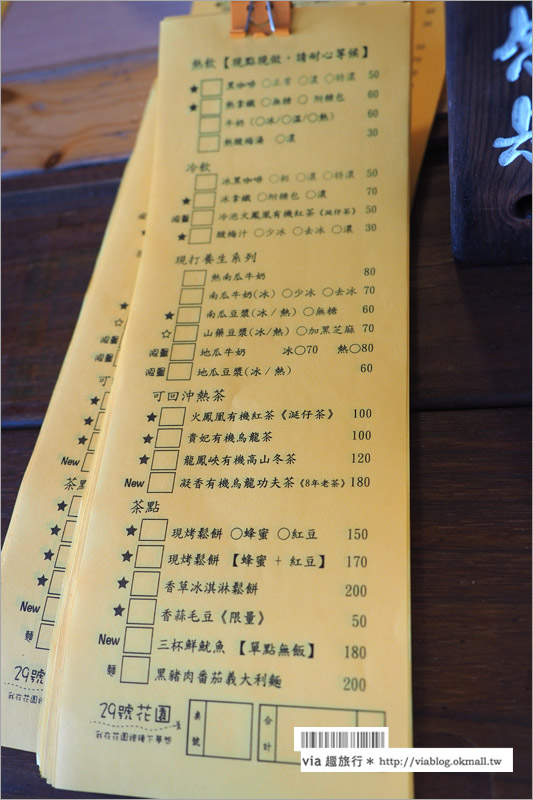 熱飲【現點現做，請耐心等候】
★ 黑咖啡 ○正常 ○濃 ○特濃 50
★ 熱拿鐵 ○無糖 ○附糖包 60
牛奶 (○冰/○溫/○熱) 60
熱酸梅湯 ○濃 30
冷飲
冰黑咖啡 ○輕 ○濃 ○特濃 50
★ 冰拿鐵 ○附糖包 ○濃 70
冷泡火鳳凰有機紅茶《涎仔茶》 50
★ 酸梅汁 ○少冰 ○去冰 ○濃 30
現打養生系列
熱南瓜牛奶 80
南瓜牛奶(冰) ○少冰 ○去冰 70
★ 南瓜豆漿(冰/熱) ○無糖 60
☆ 山藥豆漿(冰/熱) ○加黑芝麻 70
地瓜牛奶 冰○70 熱○80
地瓜豆漿(冰/熱) 60
可回沖熱茶
★ 火鳳凰有機紅茶《涎仔茶》 100
★ 貴妃有機烏龍茶 100
★ 龍鳳峽有機高山冬茶 120
New 凝香有機烏龍功夫茶《8年老茶》 180
茶點
★ 現烤鬆餅 ○蜂蜜 ○紅豆 150
★ 現烤鬆餅【蜂蜜 + 紅豆】 170
★ 香草冰淇淋鬆餅 200
★ 香蒜毛豆《限量》 50
New 三杯鮮魷魚【單點無飯】 180
麵 黑豬肉番茄義大利麵 200
29號花園
我在花園裡種下夢想
桌號
合計
可
New
茶
New
麵
29號花
我在花園裡種下夢想
via 趣旅行＊ http://viablog.okmall.tw